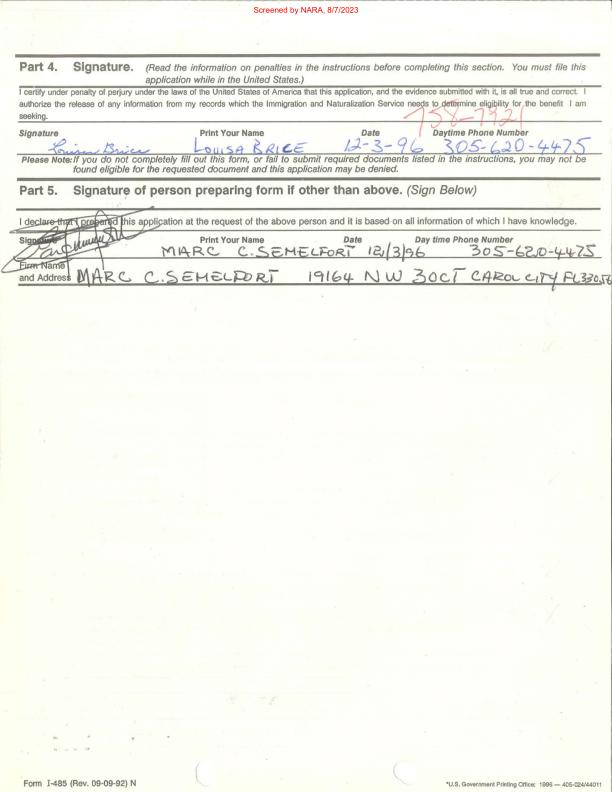 Screened by NARA, 8/7/2023
Part 4. Signature. (Read the information on penalties in the instructions before completing this section. You must file this
application while in the United States.)
I certify under penalty of perjury under the laws of the United States of America that this application, and the evidence submitted with it, is all true and correct. I
authorize the release of any information from my records which the Immigration and Naturalization Service needs to determine eligibility for the benefit I am
seeking.
758-7921
Signature Print Your Name Date Daytime Phone Number
Louisa Brice LOUISA BRICE 12-3-96 305-620-4475
Please Note: If you do not completely fill out this form, or fail to submit required documents listed in the instructions, you may not be
found eligible for the requested document and this application may be denied.
Part 5. Signature of person preparing form if other than above. (Sign Below)
I declare that I prepared this application at the request of the above person and it is based on all information of which I have knowledge.
Signature Print Your Name Date Day time Phone Number
MARC C. SEMELFORT 12/3/96 305-620-4475
Firm Name
and Address MARC C. SEMELFORT 19164 NW 30CT CAROL CITY FL 33056
Form I-485 (Rev. 09-09-92) N *U.S. Government Printing Office: 1996 — 405-024/44011